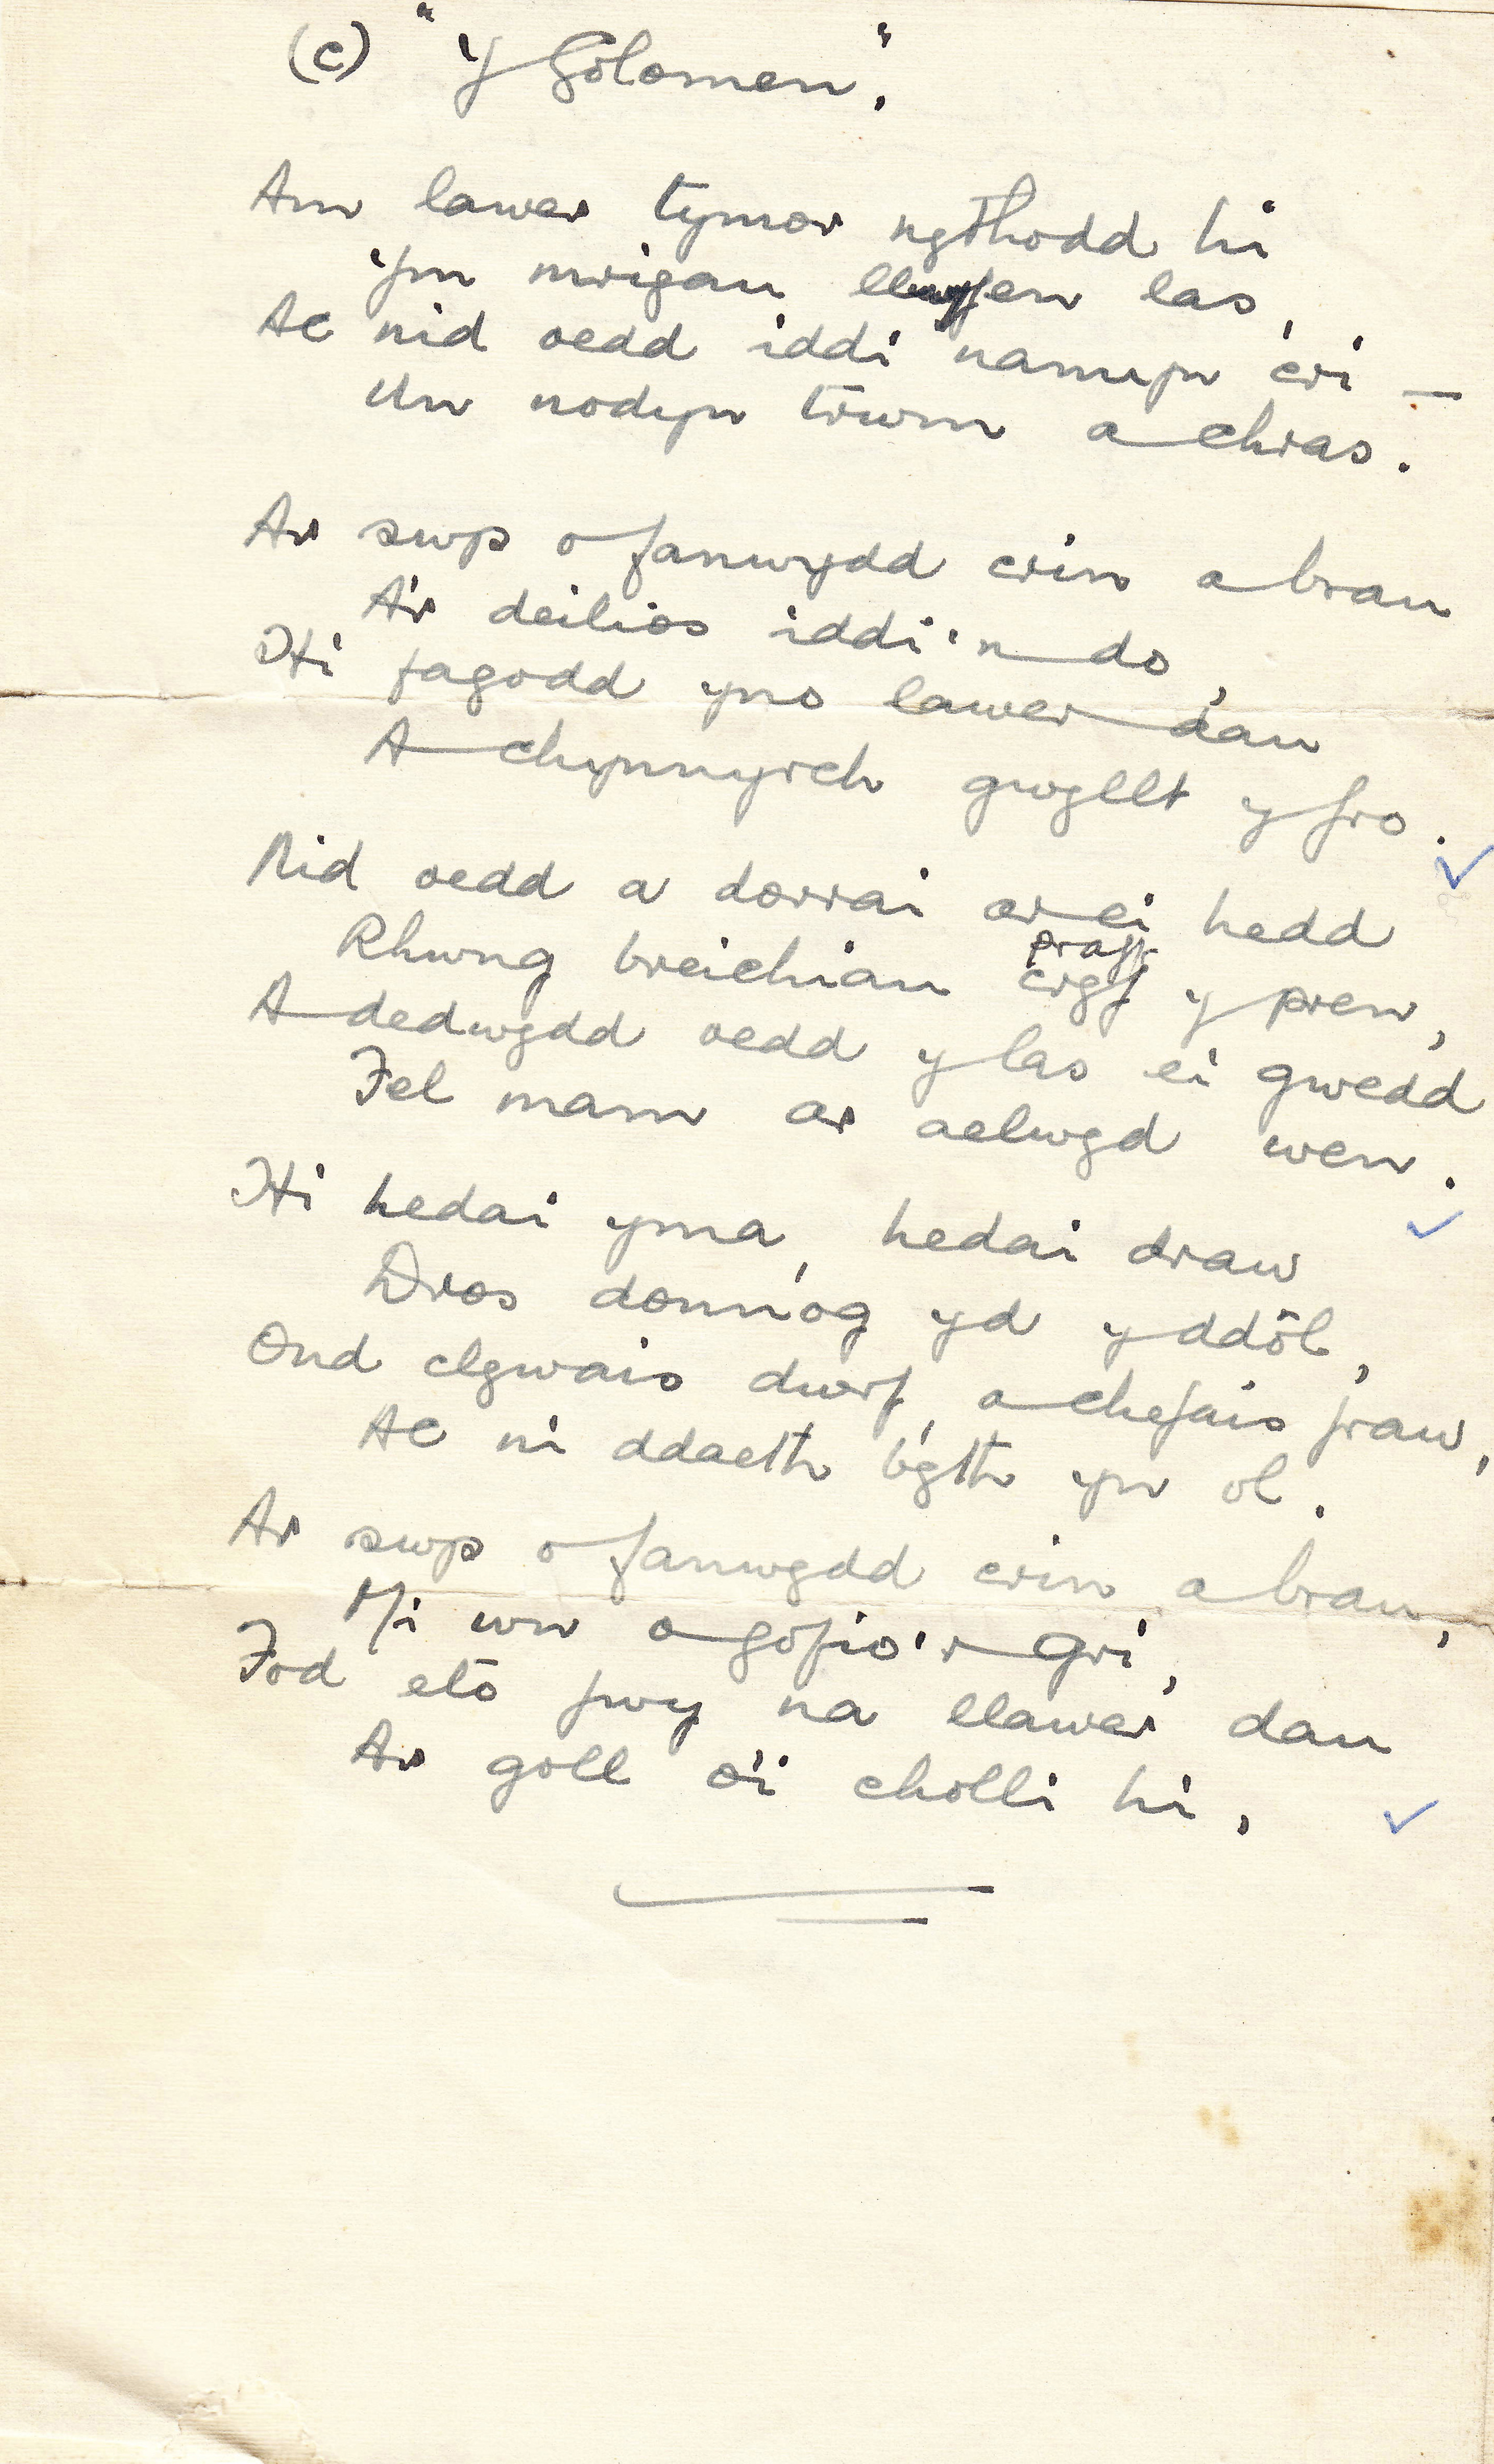 (c) "Y Golomen".
Am lawer tymor nythodd hi
Ym mrigau llwyfen las,
Ac nid oedd iddi namyn cri —
Un nodyn trwm a chras.
Ar swp o fanwydd crin a brau
A'r deilios iddi'n do,
Hi fagodd yno lawer dau
A chynnyrch gwyllt y fro.
Nid oedd a dorrai ar ei hedd
praff
Rhwng breichiau cryf y pren,
A dedwydd oedd y las ei gwedd
Fel mam ar aelwyd wen.
Hi hedai yma, hedai draw
Dros donnog yd y ddôl,
Ond clywais dwrf, a chefais fraw,
Ac ni ddaeth byth yn ol.
Ar swp o fanwydd crin a brau,
Mi wn a gofio'r gri,
Fod eto fwy na llawer dau
Ar goll o'i cholli hi.